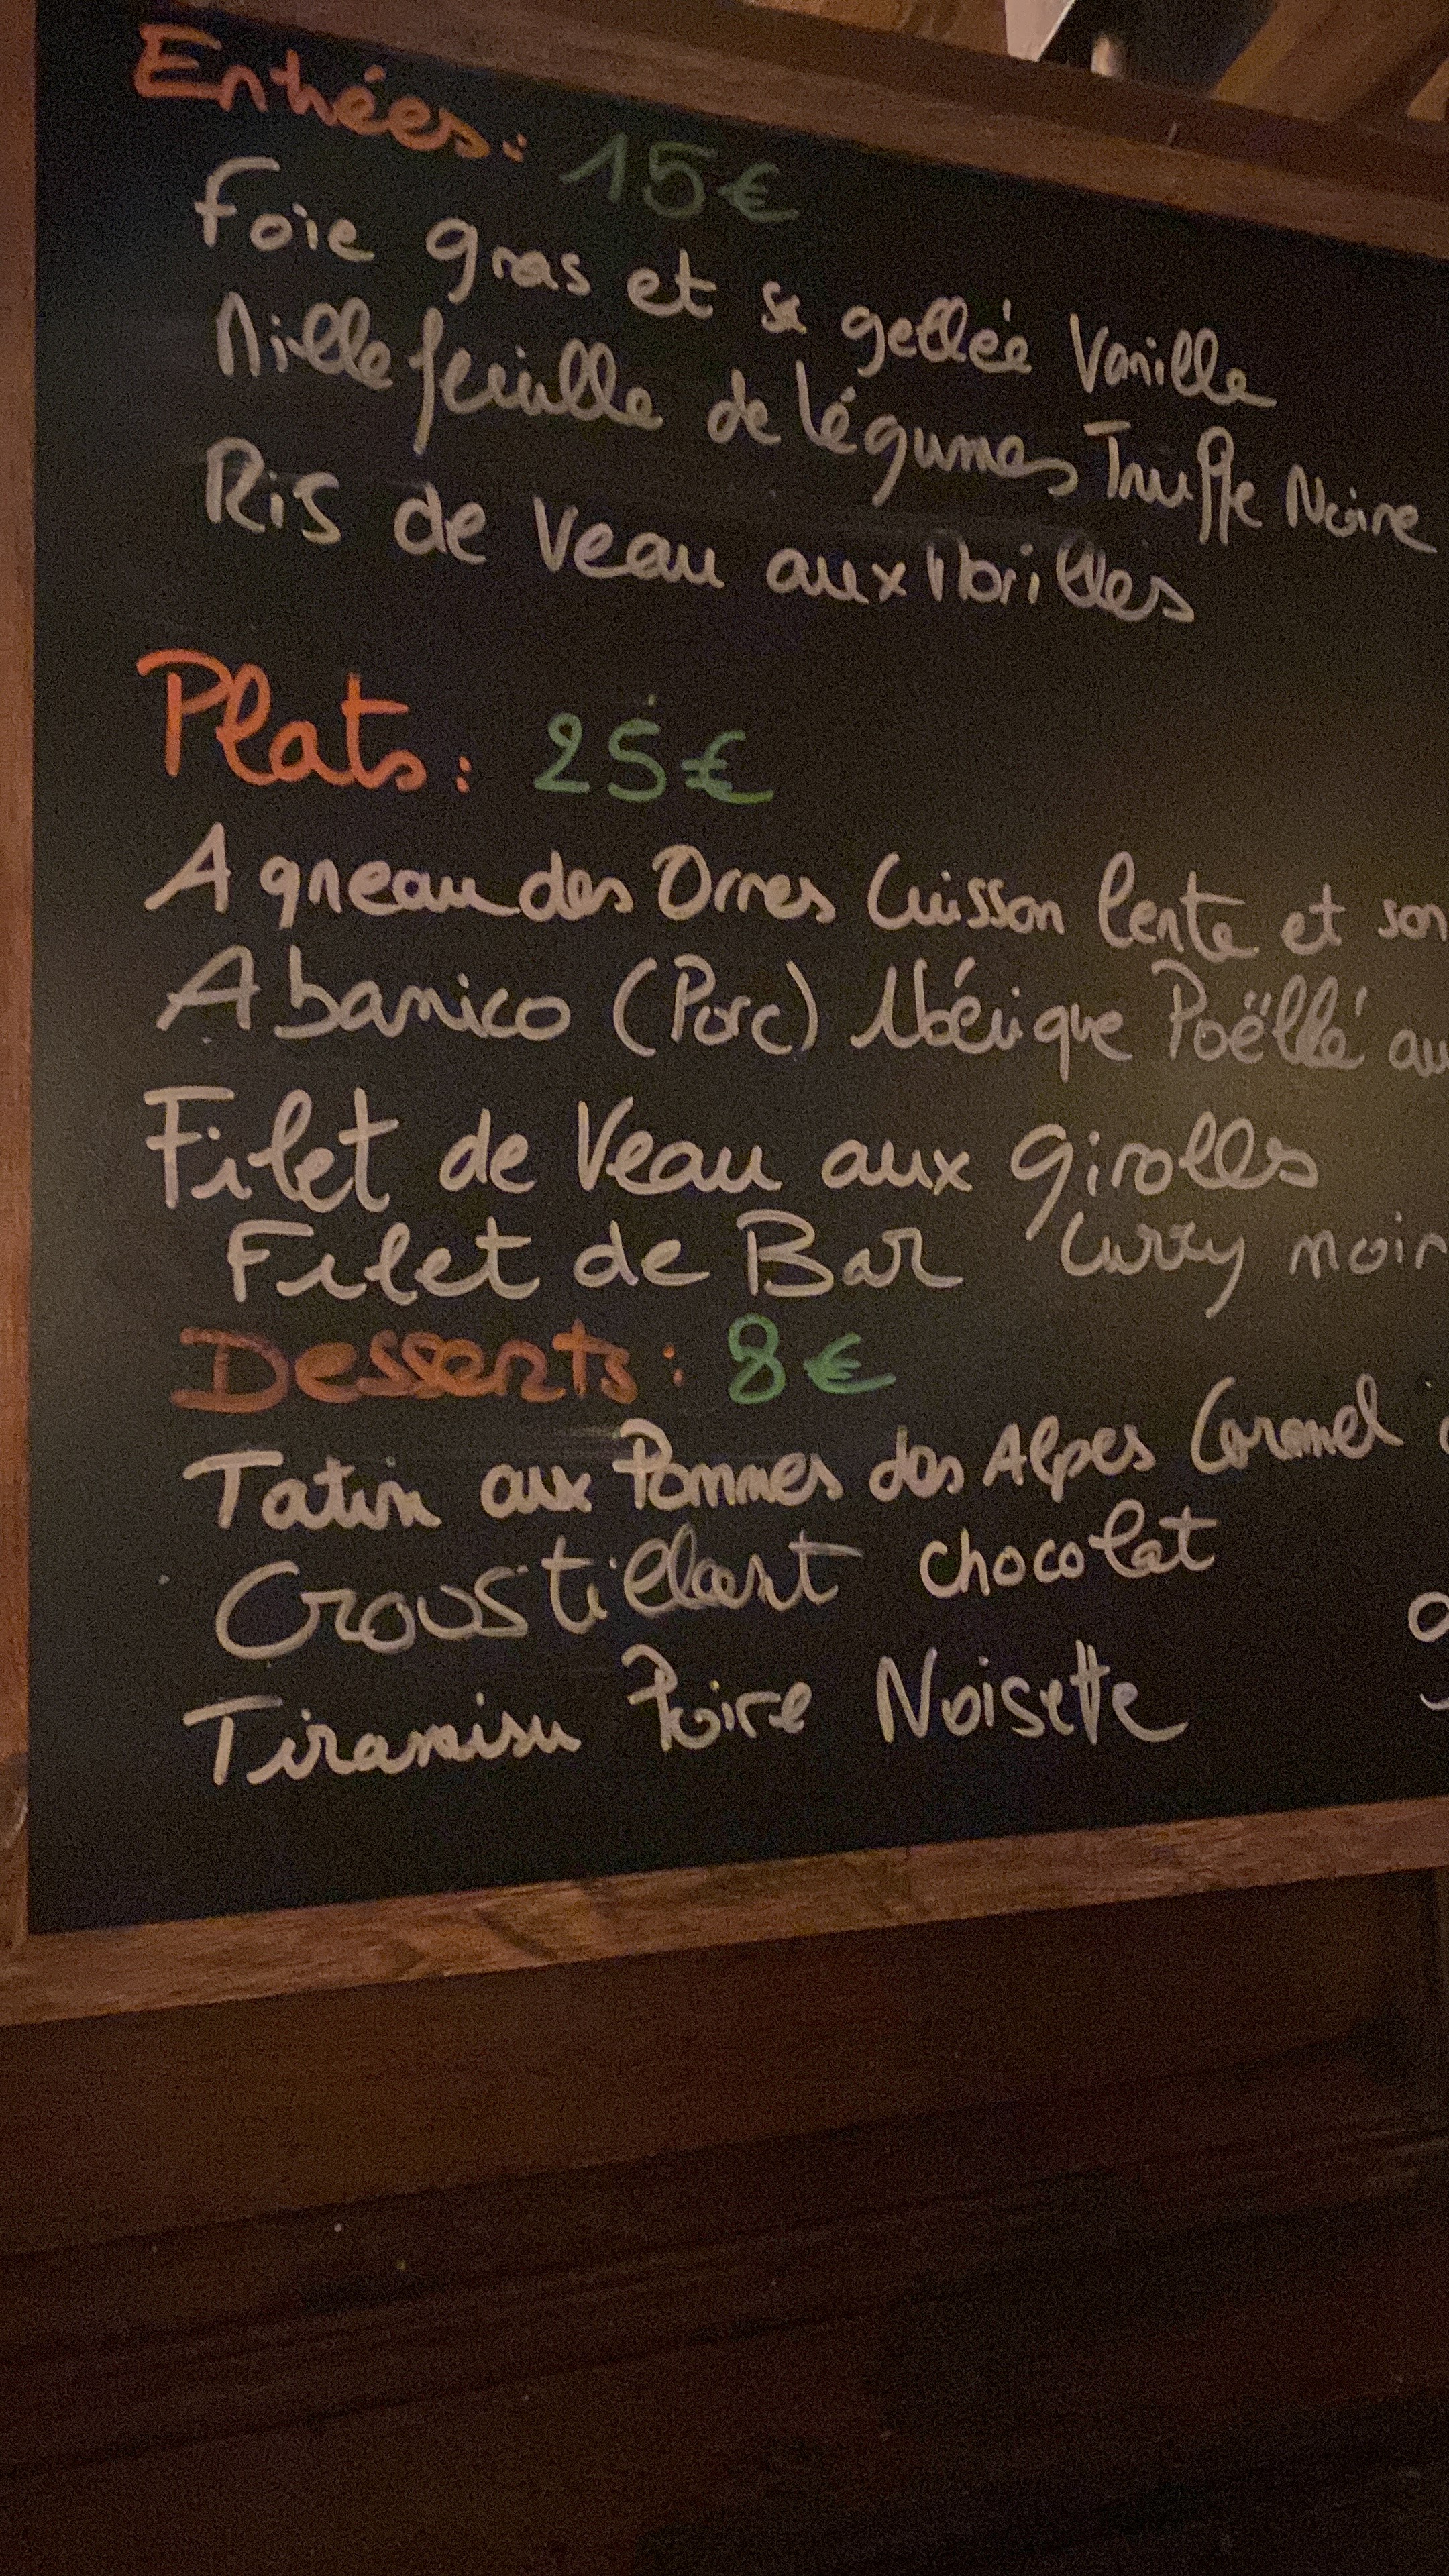 Entrées: 15€
Foie gras et sa gellée Vanille
Millefeuille de légumes Truffe Noire
Ris de Veau aux Morilles
Plats: 25€
Agneau des Orres Cuisson lente et son
Abanico (Porc) Ibérique Poëllé au
Filet de Veau aux girolles
Filet de Bar Curry noir
Desserts: 8€
Tatin aux Pommes des Alpes Caramel
Croustillant chocolat
Tiramisu Poire Noisette